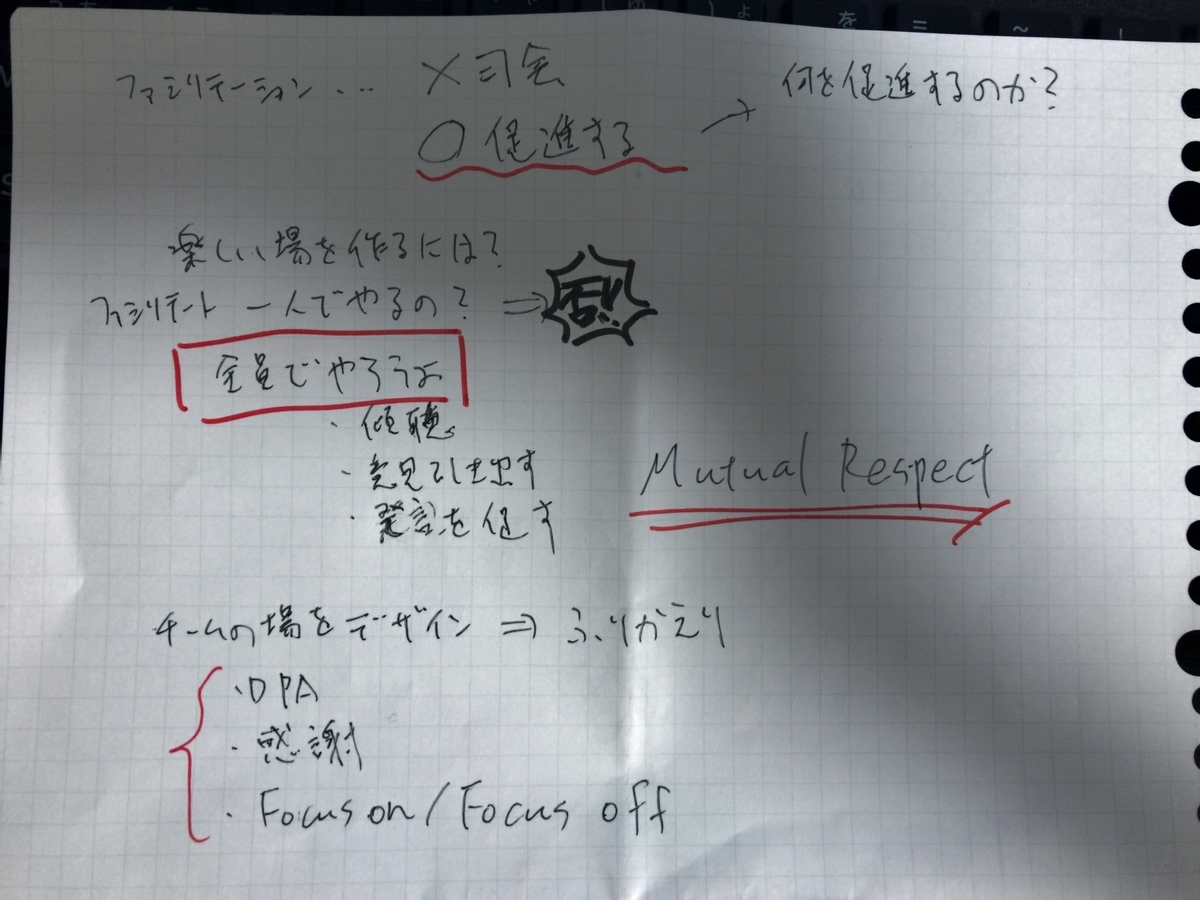 ファシリテーション・・・ ×司会
○促進する → 何を促進するのか?
楽しい場を作るには?
ファシリテート 一人でやるの? ⇒ 否!!
全員でやろうよ
・傾聴
・意見引き出す
・発言を促す
Mutual Respect
チームの場をデザイン ⇒ ふりかえり
・DPA
・感謝
・Focus on / Focus off